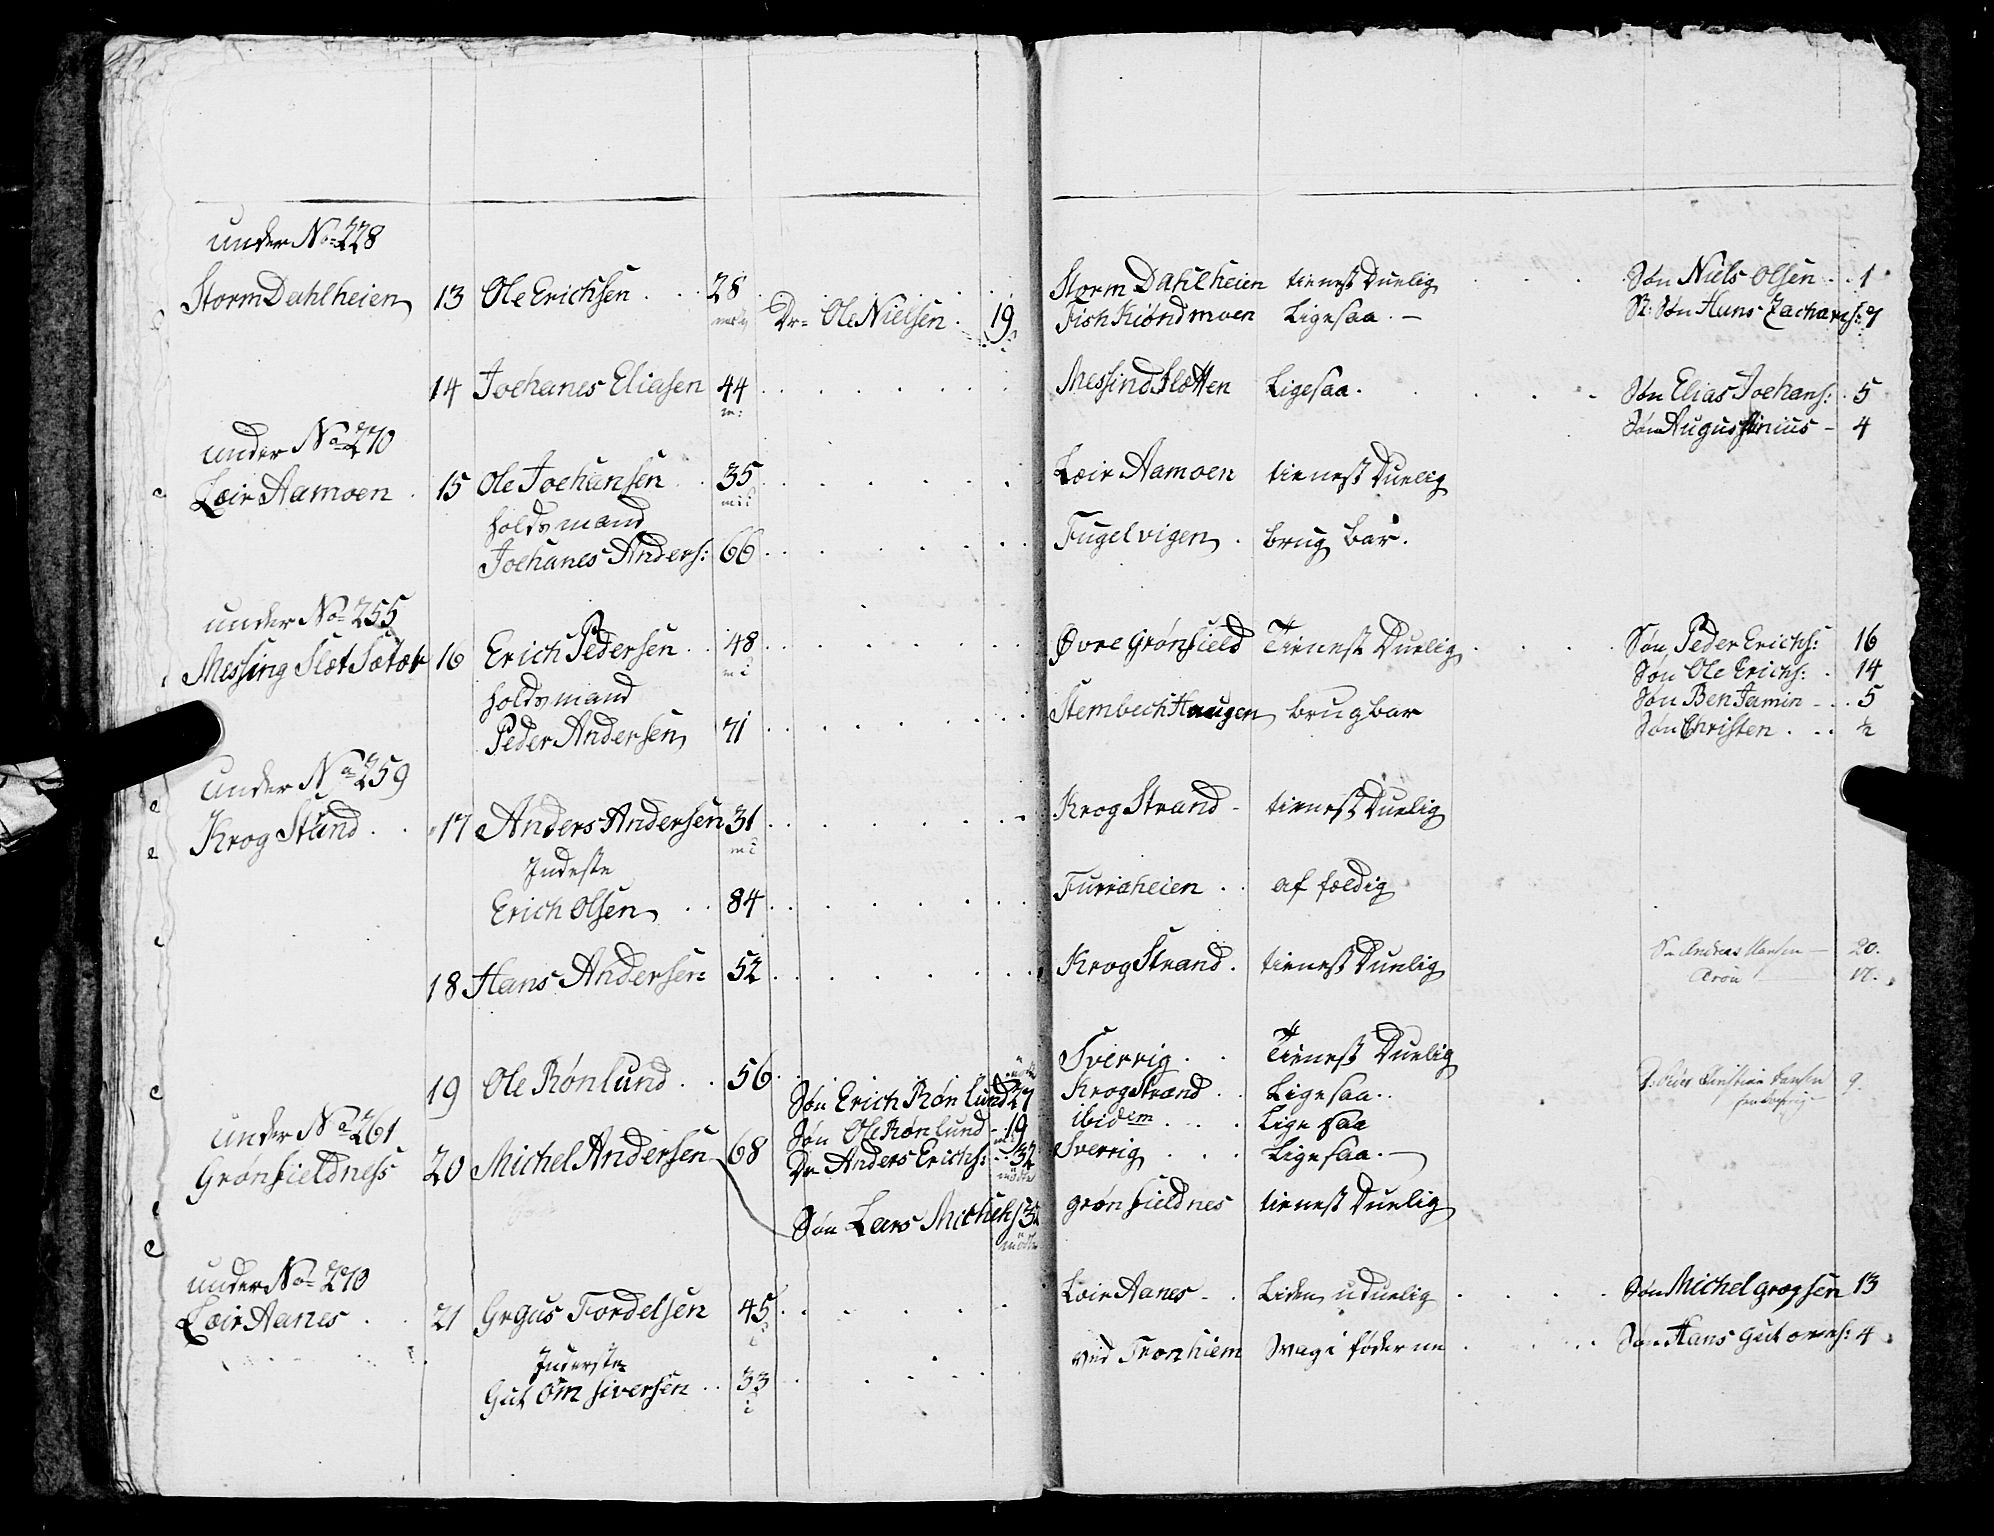 under No 228
Storm Dahlheien 13 Ole Erichsen 28 Storm Dahlheien tienest Duelig Søn Niels Olsen 1
Dr= Ole Nielsen 19 Fisk Kiøndmoen Ligesaa Hans Zachariæs: 7
14 Joehanes Eliasen 44 Messind Sletten Ligesaa Søn Elias Joehans: 5
Søn Augustinius 4
under No 270
Leir Aamoen 15 Ole Joehansen 35 Leir Aamoen tienest Duelig
holdsmand
Joehanes Anders: 66 Fugelvigen brugbar
under No 255
Messing Slet Sæter 16 Erich Pedersen 48 Øvre Grønfield Tienest Duelig Søn Peder Erichs: 16
Søn Ole Erichs: 14
holdsmand
Peder Andersen 71 Stembech Haugen brugbar Søn BenJamin 5
Søn Christen ½
under No 259
Krog Stand 17 Anders Andersen 31 Krog Strand tienest Duelig
Inderste
Erich Olsen 84 Furraheien affældig
18 Hans Andersen 52 Krog Strand tienest Duelig Sn Andreas Hansen 20
Aron 17
19 Ole Rønlund 56 Sverrig Tienest Duelig
Søn Erich Rønlund 27 Krog Strand Ligesaa Christian Hansen 9
under No 261
Søn Ole Rønlund 19 ibidem Lige saa
Grønfieldness 20 Michel Andersen 68 Dr Anders Erichs: 32 Sverrig Ligesaa
Søn Lars Michels grønfieldnes tienest Duelig
under No 270
Leir Aanes 21 Grgus Tordelsen 45 Leir Aanes Liden uduelig Søn Michel gregsen 13
Inderste
Gut om siversen 33 ved Tronhiem Svag i føderne Søn Hans Gutorms: 4